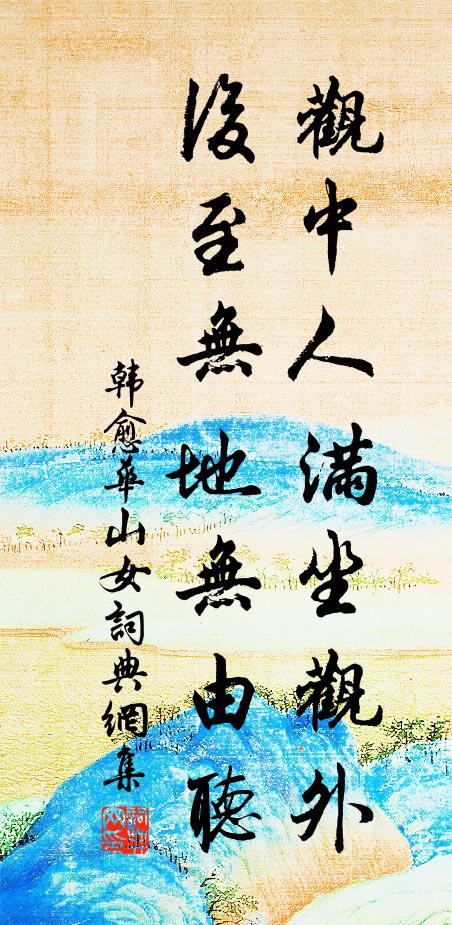 觀中人滿坐觀外
後至無地無由聽
韩愈華山女詞典網集